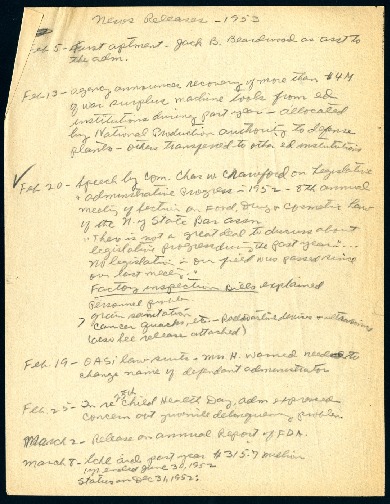 News Releases - 1953
Feb. 5 - First aptment - Jack B. Beardwood as asst to
the adm.
Feb. 13 - agency announces recovery of more than $4M
of war surplus machine tools from ed
institutions during past year - allocated
by National Production authority to defense
plants - others transferred to other ed institutions
Feb. 20 - Speech by Com. Chas W. Crawford on Legislative
+ administrative Progress in 1952 - 8th annual
meeting of Section on Food, Drug & Cosmetic Law
of the N.Y State Bar assn
"There is not a great deal to discuss about
legislative progress during the past year ...
No legislation in our field was passed since
our last meeting."
Factory inspection bills explained
Personnel problem
grain sanitation
Cancer quacks, etc - Radioactive devices
release attached)
Feb. 19 - OASI law suits - Mrs. H. named
change name of defendant administrator
Feb. 25 - In re 25th Child Health Day, adm expressed
concern over juvenile delinquency problem.
March 2 - Release on annual Report of FDA.
March 8 - past year $315.7 million
ended June 30, 1952
Status on Dec 31, 1952.